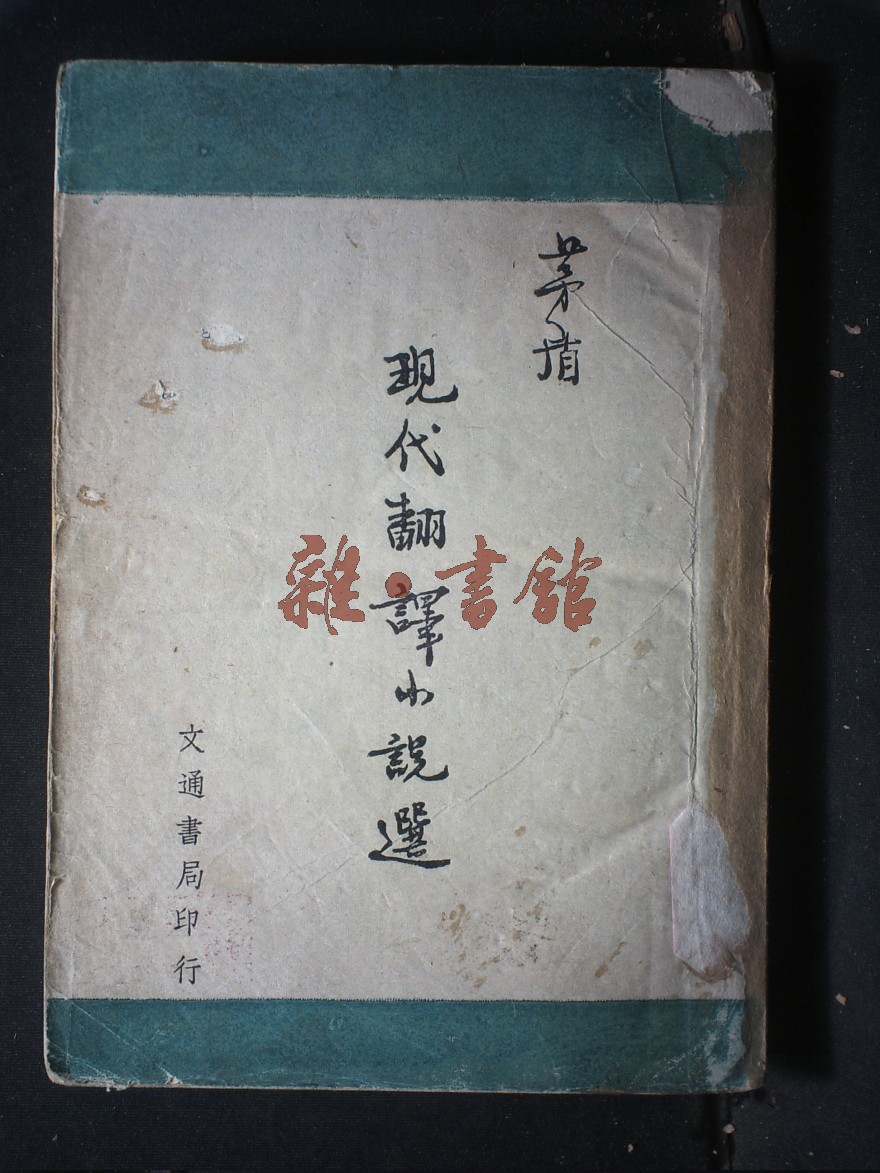 茅盾
現代翻譯小説選
文通書局印行
雜·書館